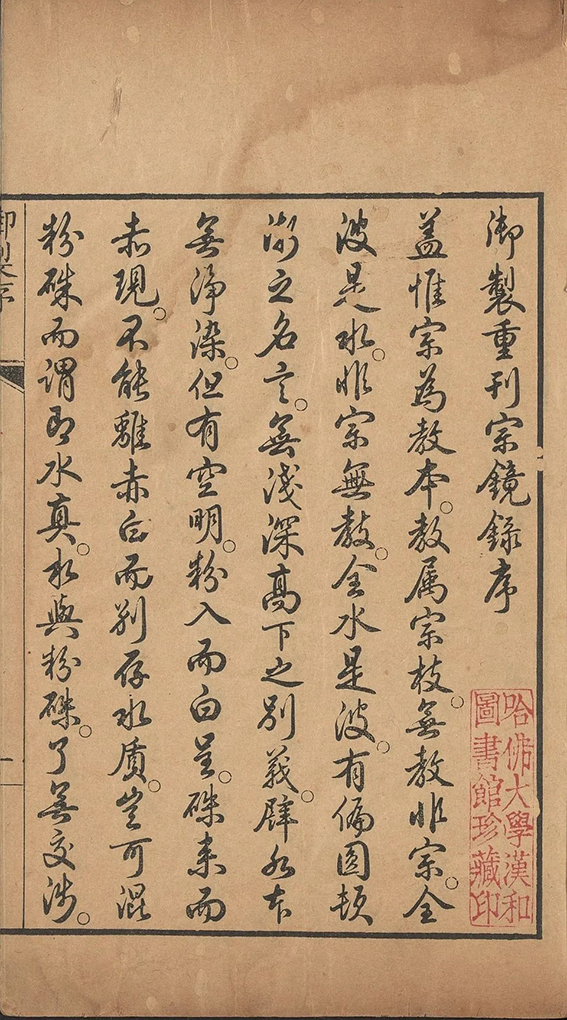 御製重刊宗鏡錄序
蓋惟宗為教本。教属宗枝。無教非宗。全
波是水。非宗無教。全水是波。有偏圓頓
漸之名言。無淺深高下之別義。譬如水本
無淨染。但有空明。粉入而白呈。硃来而
赤現。不能離赤白而别存水质。豈可混
粉硃而謂即水真。水與粉硃。了無交涉。
御製序
一
哈佛大學漢和
圖書館珍藏印